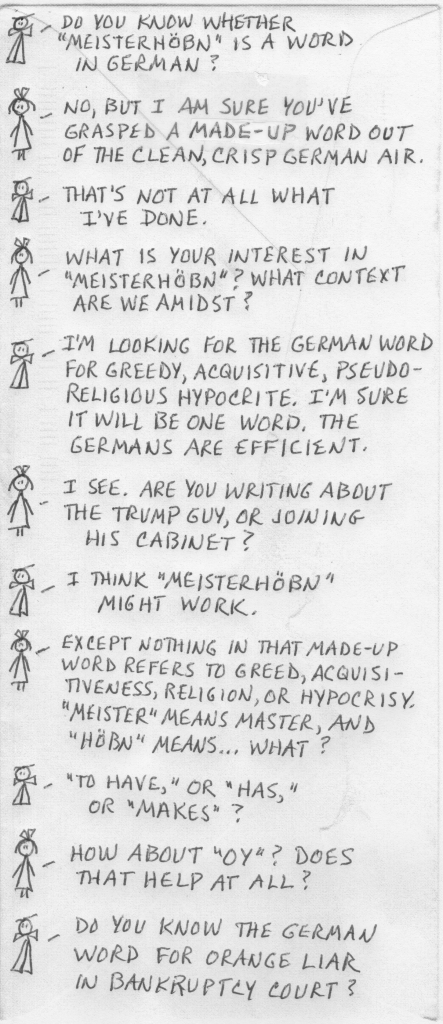 DO YOU KNOW WHETHER
"MEISTERHÖBN" IS A WORD
IN GERMAN?
NO, BUT I AM SURE YOU'VE
GRASPED A MADE-UP WORD OUT
OF THE CLEAN, CRISP GERMAN AIR.
THAT'S NOT AT ALL WHAT
I'VE DONE.
WHAT IS YOUR INTEREST IN
"MEISTERHÖBN"? WHAT CONTEXT
ARE WE AMIDST?
I'M LOOKING FOR THE GERMAN WORD
FOR GREEDY, ACQUISITIVE, PSEUDO-
RELIGIOUS HYPOCRITE. I'M SURE
IT WILL BE ONE WORD. THE
GERMANS ARE EFFICIENT.
I SEE. ARE YOU WRITING ABOUT
THE TRUMP GUY, OR JOINING
HIS CABINET?
I THINK "MEISTERHÖBN"
MIGHT WORK.
EXCEPT NOTHING IN THAT MADE-UP
WORD REFERS TO GREED, ACQUISI-
TIVENESS, RELIGION, OR HYPOCRISY.
"MEISTER" MEANS MASTER, AND
"HÖBN" MEANS... WHAT?
"TO HAVE," OR "HAS,"
OR "MAKES"?
HOW ABOUT "OY"? DOES
THAT HELP AT ALL?
DO YOU KNOW THE GERMAN
WORD FOR ORANGE LIAR
IN BANKRUPTCY COURT?